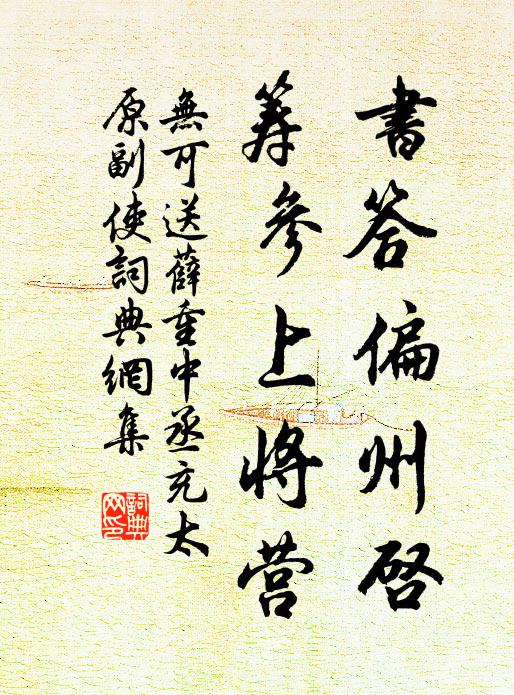 書答偏州啓
筭參上將营
無可送薛重中丞充太
原副使詞典網集
詞典网印